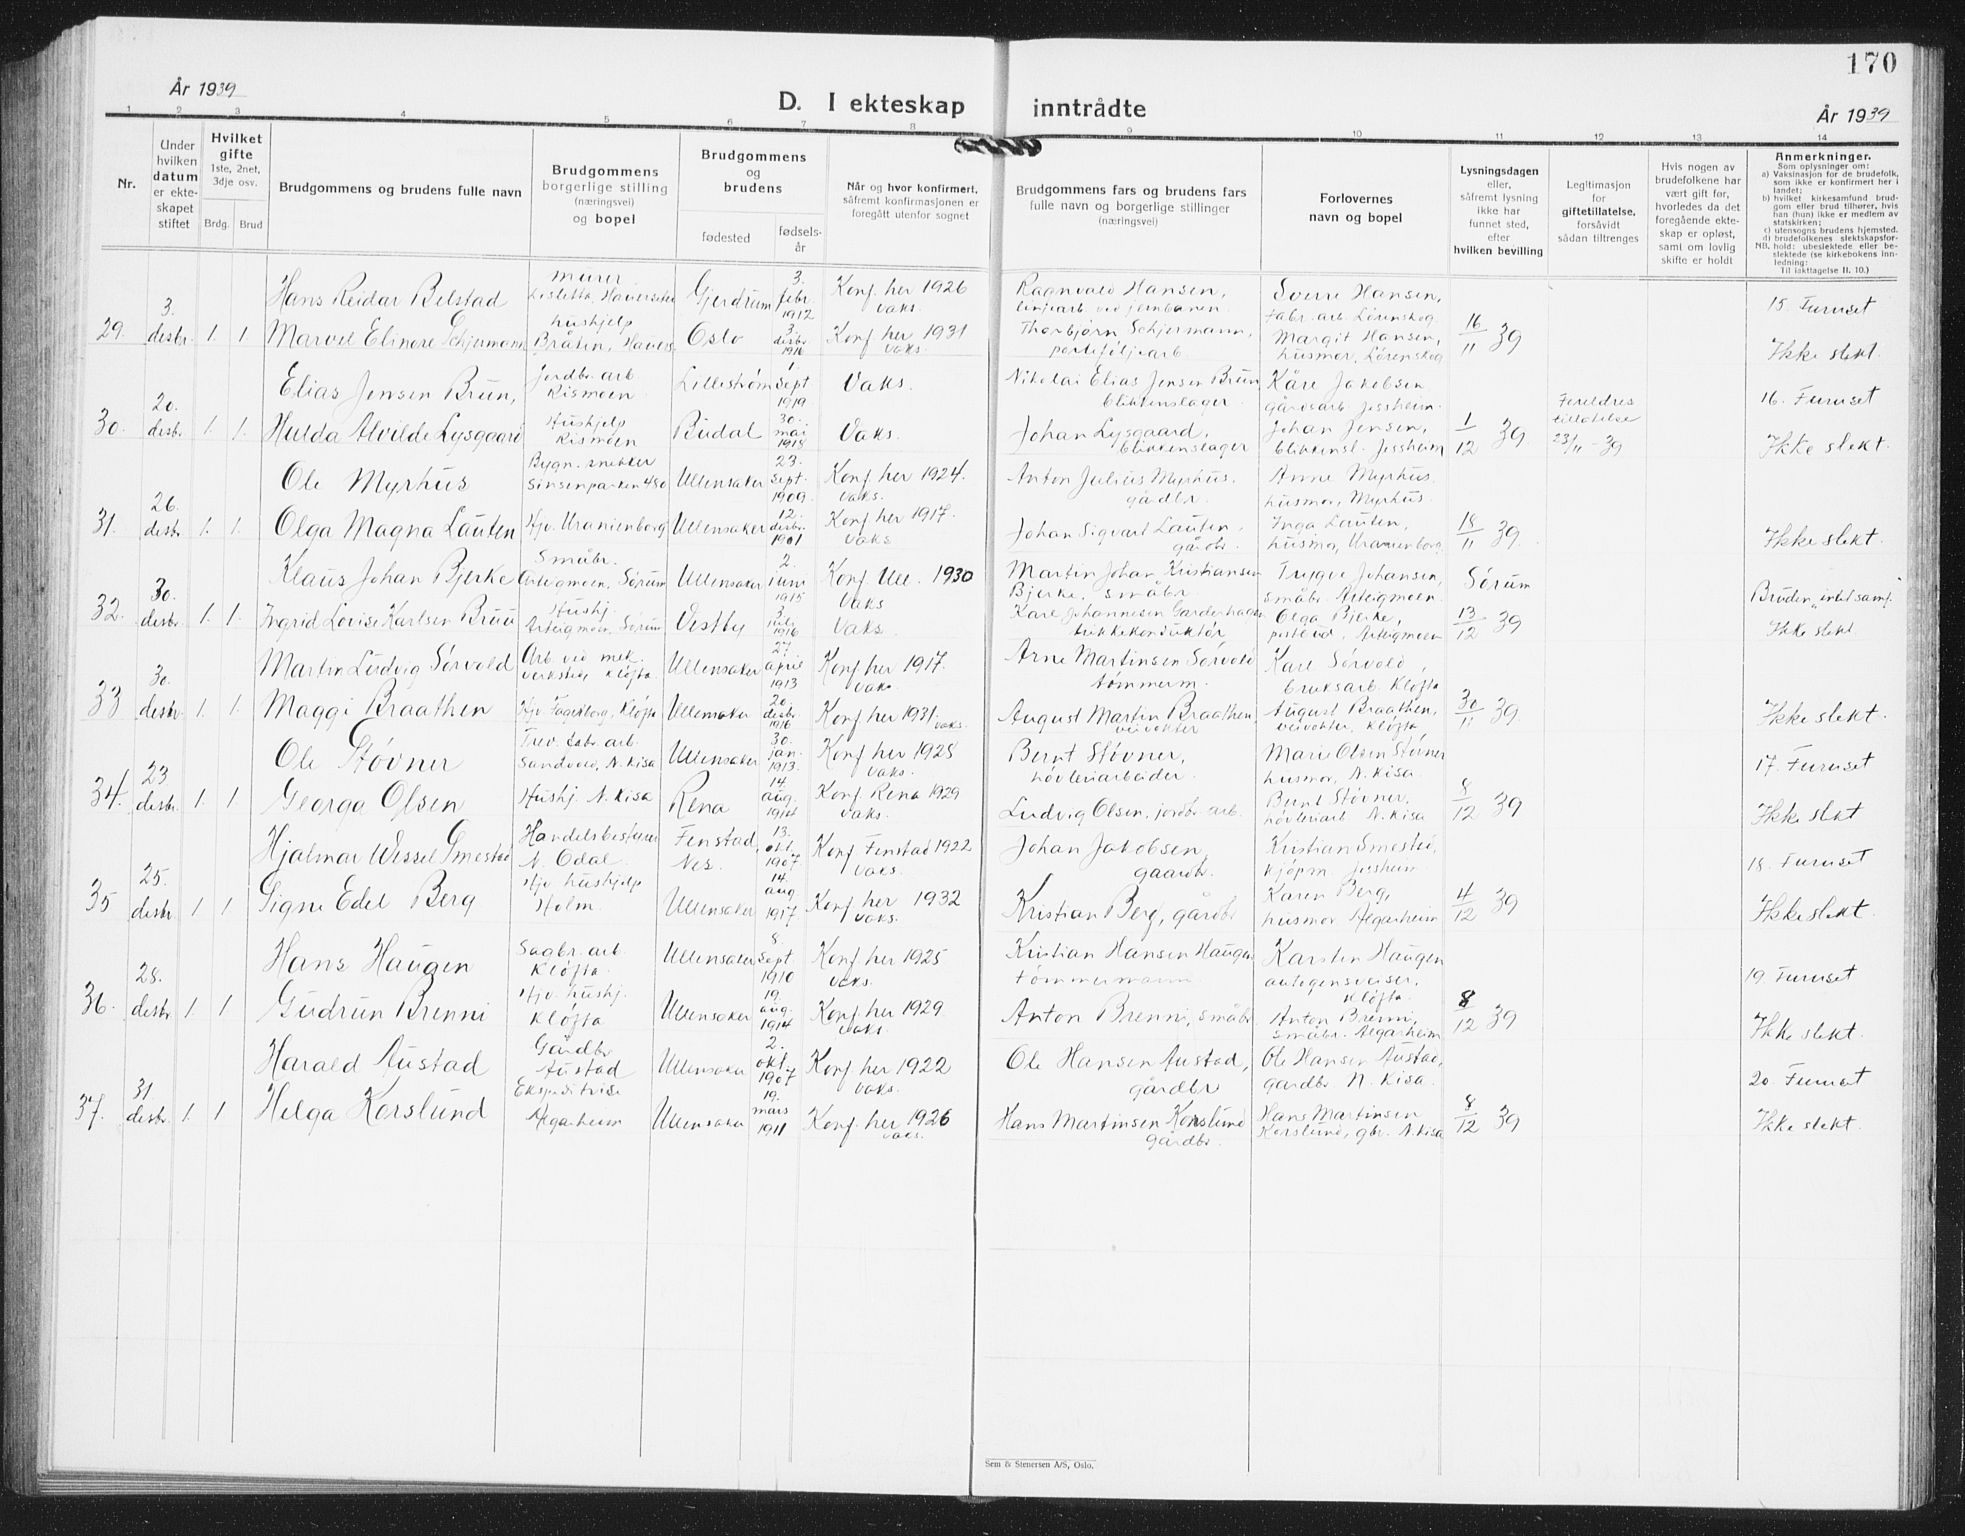 170
År 1939
D. I ekteskap inntrådte
År 1939
1 2 3 4 5 6 7 8 9 10 11 12 13 14
Nr.
Under hvilken datum er ekteskapet stiftet
Hvilket gifte
1ste, 2net, 3dje osv.
Brdg. Brud
Brudgommens og brudens fulle navn
Brudgommens borgerlige stilling (næringsvei) og bopel
Brudgommens og brudens
fødested
fødselsår
Når og hvor konfirmert, såfremt konfirmasjonen er foregått utenfor sognet
Brudgommens fars og brudens fars fulle navn og borgerlige stillinger (næringsvei)
Forlovernes navn og bopel
Lysningsdagen eller, såfremt lysning ikke har funnet sted, efter hvilken bevilling
Legitimasjon for giftetillatelse, forsåvidt sådan tiltrenges
Hvis nogen av brudefolkene har vært gift før, hvorledes da det foregående ekteskap er opløst, samt om lovlig skifte er holdt
Anmerkninger.
Som oplysninger om:
a) Vaksinasjon for de brudefolk, som ikke er konfirmert her i landet;
b) hvilket kirkesamfund brudgom eller brud tilhører, hvis han (hun) ikke er medlem av statskirken;
c) utensogns brudens hjemsted.
d) brudefolkenes slektskapsforhold: ubeslektede eller beslektede (se kirkebokens innledning:
NB. Til iakttagelse II. 10.)
Hans Reidar Belstad
murer
Gjerdrum
3. febr. 1912
Konf. her 1926 vaks.
Ragnvald Hansen, linjearb. ved jernbanen
Sverre Hansen, fabr. arb. Lörenskog
15. Furuset
29. 3. desbr. 1. 1
Marvel Elinore Schjermann
hushjelp Bråten,
Oslo
3. desbr 1916
Konf. her 1931 vaks.
Thorbjörn Schjermann, porteföljearb.
Margit Hansen, husmor, Lörenskog
16/11 39
Ikke slekt.
Elias Jensen Bruun,
jordbr. arb Rismoen
Lilleström
1. sept 1919
Vaks.
Nikolai Elias Jensen Bruun blikkenslager
Kåre Jakobsen gårdsarb. Jessheim.
Foreldres tillatelse 23/11 - 39
16. Furuset
30. 20. desbr. 1. 1.
Hulda Alvilde Lysgaard
Hushjelp Rismoen
Budal
30. mai 1918
Vaks.
Johan Lysgaard, blikkenslager
Johan Jensen, blikkensl. Jessheim
1/12 39
Ikke slekt.
Ole Myrhus
Bygn. snekker Sinsenparken 480
Ullensaker
23. sept. 1909.
Konf. her 1924. vaks.
Anton Julius Myrhus. gårdbr.
Anne Myrhus. husmor, Myrhus.
31. 26. desbr 1. 1.
Olga Magna Lauten
Hjv. Uranienborg
Ullensaker
12. desbr. 1901
Konf. her 1917. vaks
Johan Sigvart Lauten, gårdbr.
Inga Lauten, husmor, Uranienborg
18/11 39.
Ikke slekt.
Klaus Johan Bjerke
Småbr. Arteigmoen, Sørum
Ullensaker
2. juni 1915
Konf. Ull. 1930 Vaks
Martin Johan Kristiansen Bjerke, småbr.
Trygve Johansen, småbr. Arteigmoen
Sörum
32. 30. desbr. 1. 1.
Ingrid Lovise Karlsen Bruu
Hushj. Arteigmoen, Sørum
Vestby
3. juli 1916
Vaks.
Karl Johannesen Garderhagen trikkekonduktør
Olga Bjerke, Arteigmoen
13/12 39
Ikke slekt
Martin Ludvig Sørvold
Arb. ved mek. verksted, Kløfta.
Ullensaker
27. april 1913
Konf. her 1917. vaks.
Arne Martinsen Sørvold tømmerm.
Karl Sørvold, bruksarb. Kløfta
33 30. desbr. 1. 1.
Maggi Braathen
Hjv Fagerborg, Kløfta
Ullensaker
20. desbr. 1916
Konf. her 1931. vaks.
August Martin Braathen veivokter
August Braathen, veivokter, Kløfta
30/11 39
Ikke slekt.
Ole Støvner
Trev. fabr. arb. Sandvold, N. Kisa
Ullensaker
30. jan. 1913.
Konf. her 1928 vaks.
Bernt Støvner, høvleriarbeider.
Marie Olsen Støvner husmor, N. Kisa.
17. Furuset
34. 23 desbr. 1. 1.
Georga Olsen
Hushj. N. Kisa
Rena
14. aug. 1914
Konf. Rena 1929 vaks.
Ludvig Olsen, jordbr. arb.
Bernt Støvner, høvleriarb N. Kisa
8/12 39
Ikke slekt
Hjalmar Wessel Smestad
Handelsbestyrer N. Odal.
Fenstad, Nes.
13. okt. 1907.
Konf. Fenstad 1922 vaks.
Johan Jakobsen, gaardbr.
Kristian Smestad, kjøpm. Jessheim.
18. Furuset
35 25. desbr. 1 1
Signe Edel Berg
Hjv. hushjelp Holm.
Ullensaker
14. aug 1917
Konf her 1932 vaks.
Kristian Berg, gårdbr
Karen Berg, husmor Algarheim
4/12 39
Ikke slekt.
Hans Haugen
Sagbr. arb. Kløfta.
Ullensaker
8. sept 1910
Konf. her 1925 vaks.
Kristian Hansen Haugen tømmermann
Karsten Haugen autogensveiser, Kløfta.
19. Furuset
36. 28. desbr. 1. 1
Gudrun Brenni
Hjv. hushj. Kløfta
Ullensaker
19. aug. 1914
Konf. her 1929 vaks.
Anton Brenni, småbr.
Anton Brenni, småbr. Algarheim
8/12 39
Ikke slekt.
Harald Austad
Gårdbr Austad
Ullensaker
2. okt. 1907
Konf her 1922 vaks.
Ole Hansen Austad, gårdbr
Ole Hansen Austad, gårdbr. N. Kisa.
20. Furuset
37. 31 desbr. 1. 1
Helga Korslund
Ekspeditrise Algarheim
Ullensaker
19. mars 1911
Konf. her 1926 vaks.
Hans Martinsen Korslund gårdbr.
Hans Martinsen Korslund, gbr. N. Kisa
8/12 39
Ikke slekt.
Sem & Stenersen A/S, Oslo.